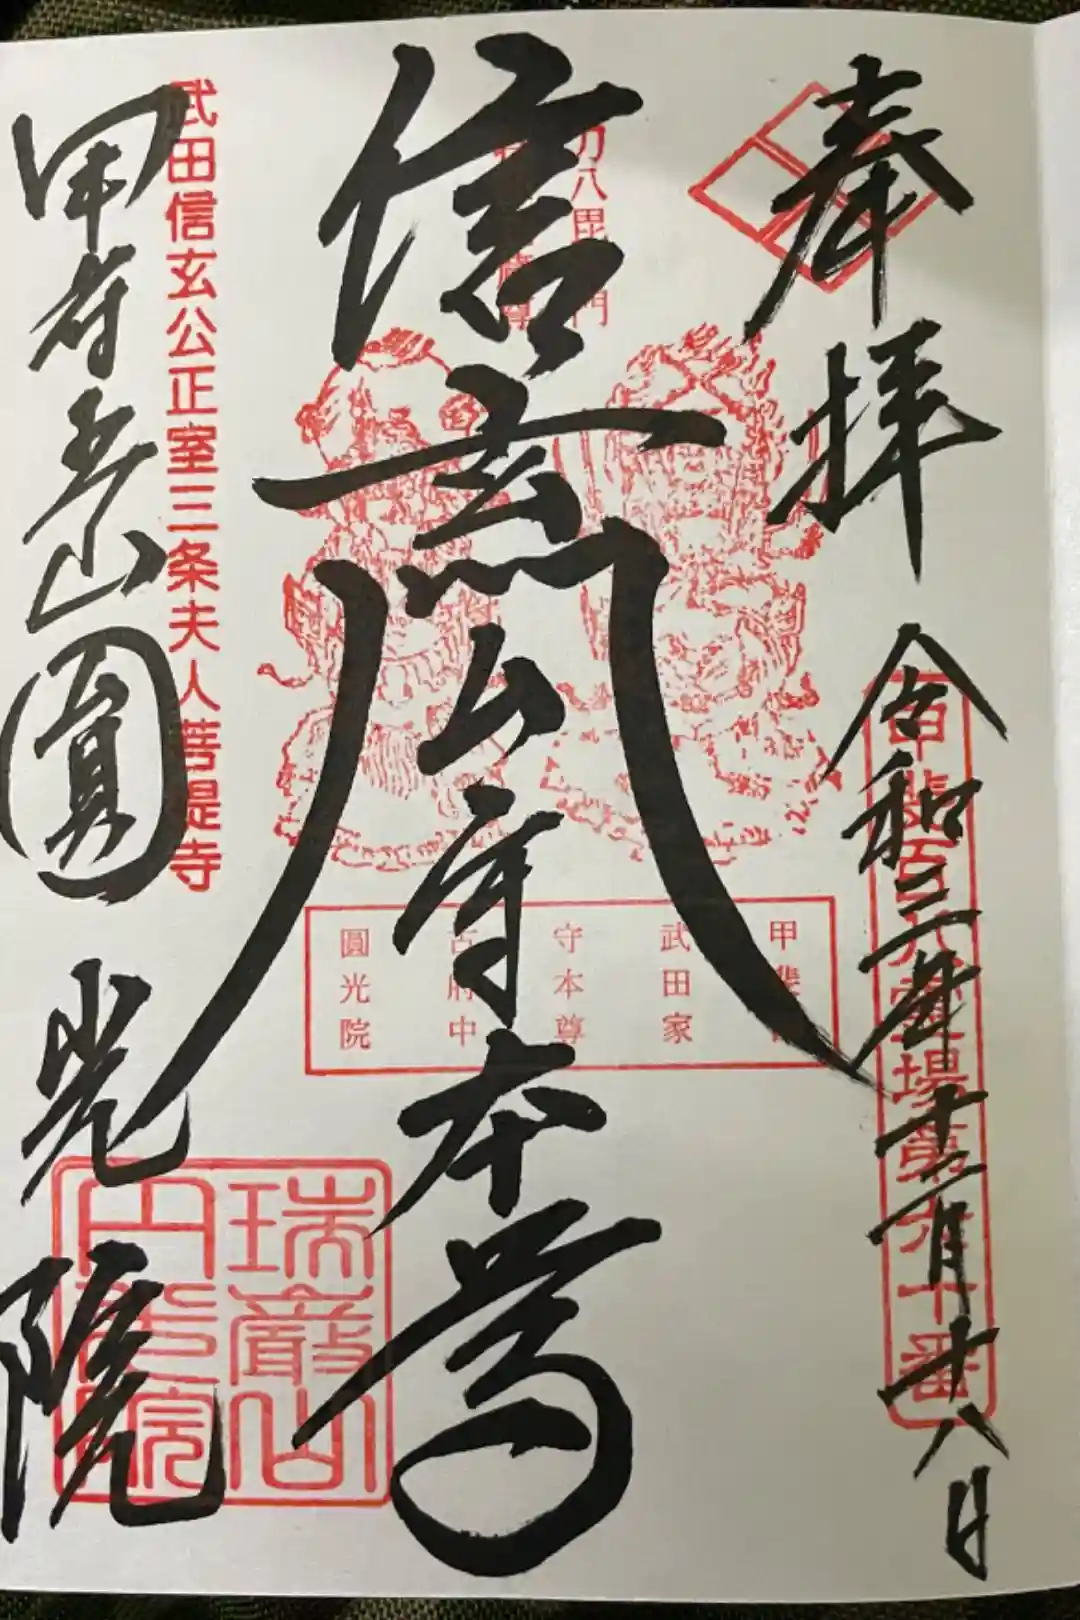 奉拝
令和三年十二月十八日
甲斐百八霊場第六十番
刀八毘沙門
信玄公守本尊
甲斐国
武田家
守本尊
古府中
圓光院
武田信玄公正室三条夫人菩提寺
甲府五山圓光院
瑞巖山
円光院